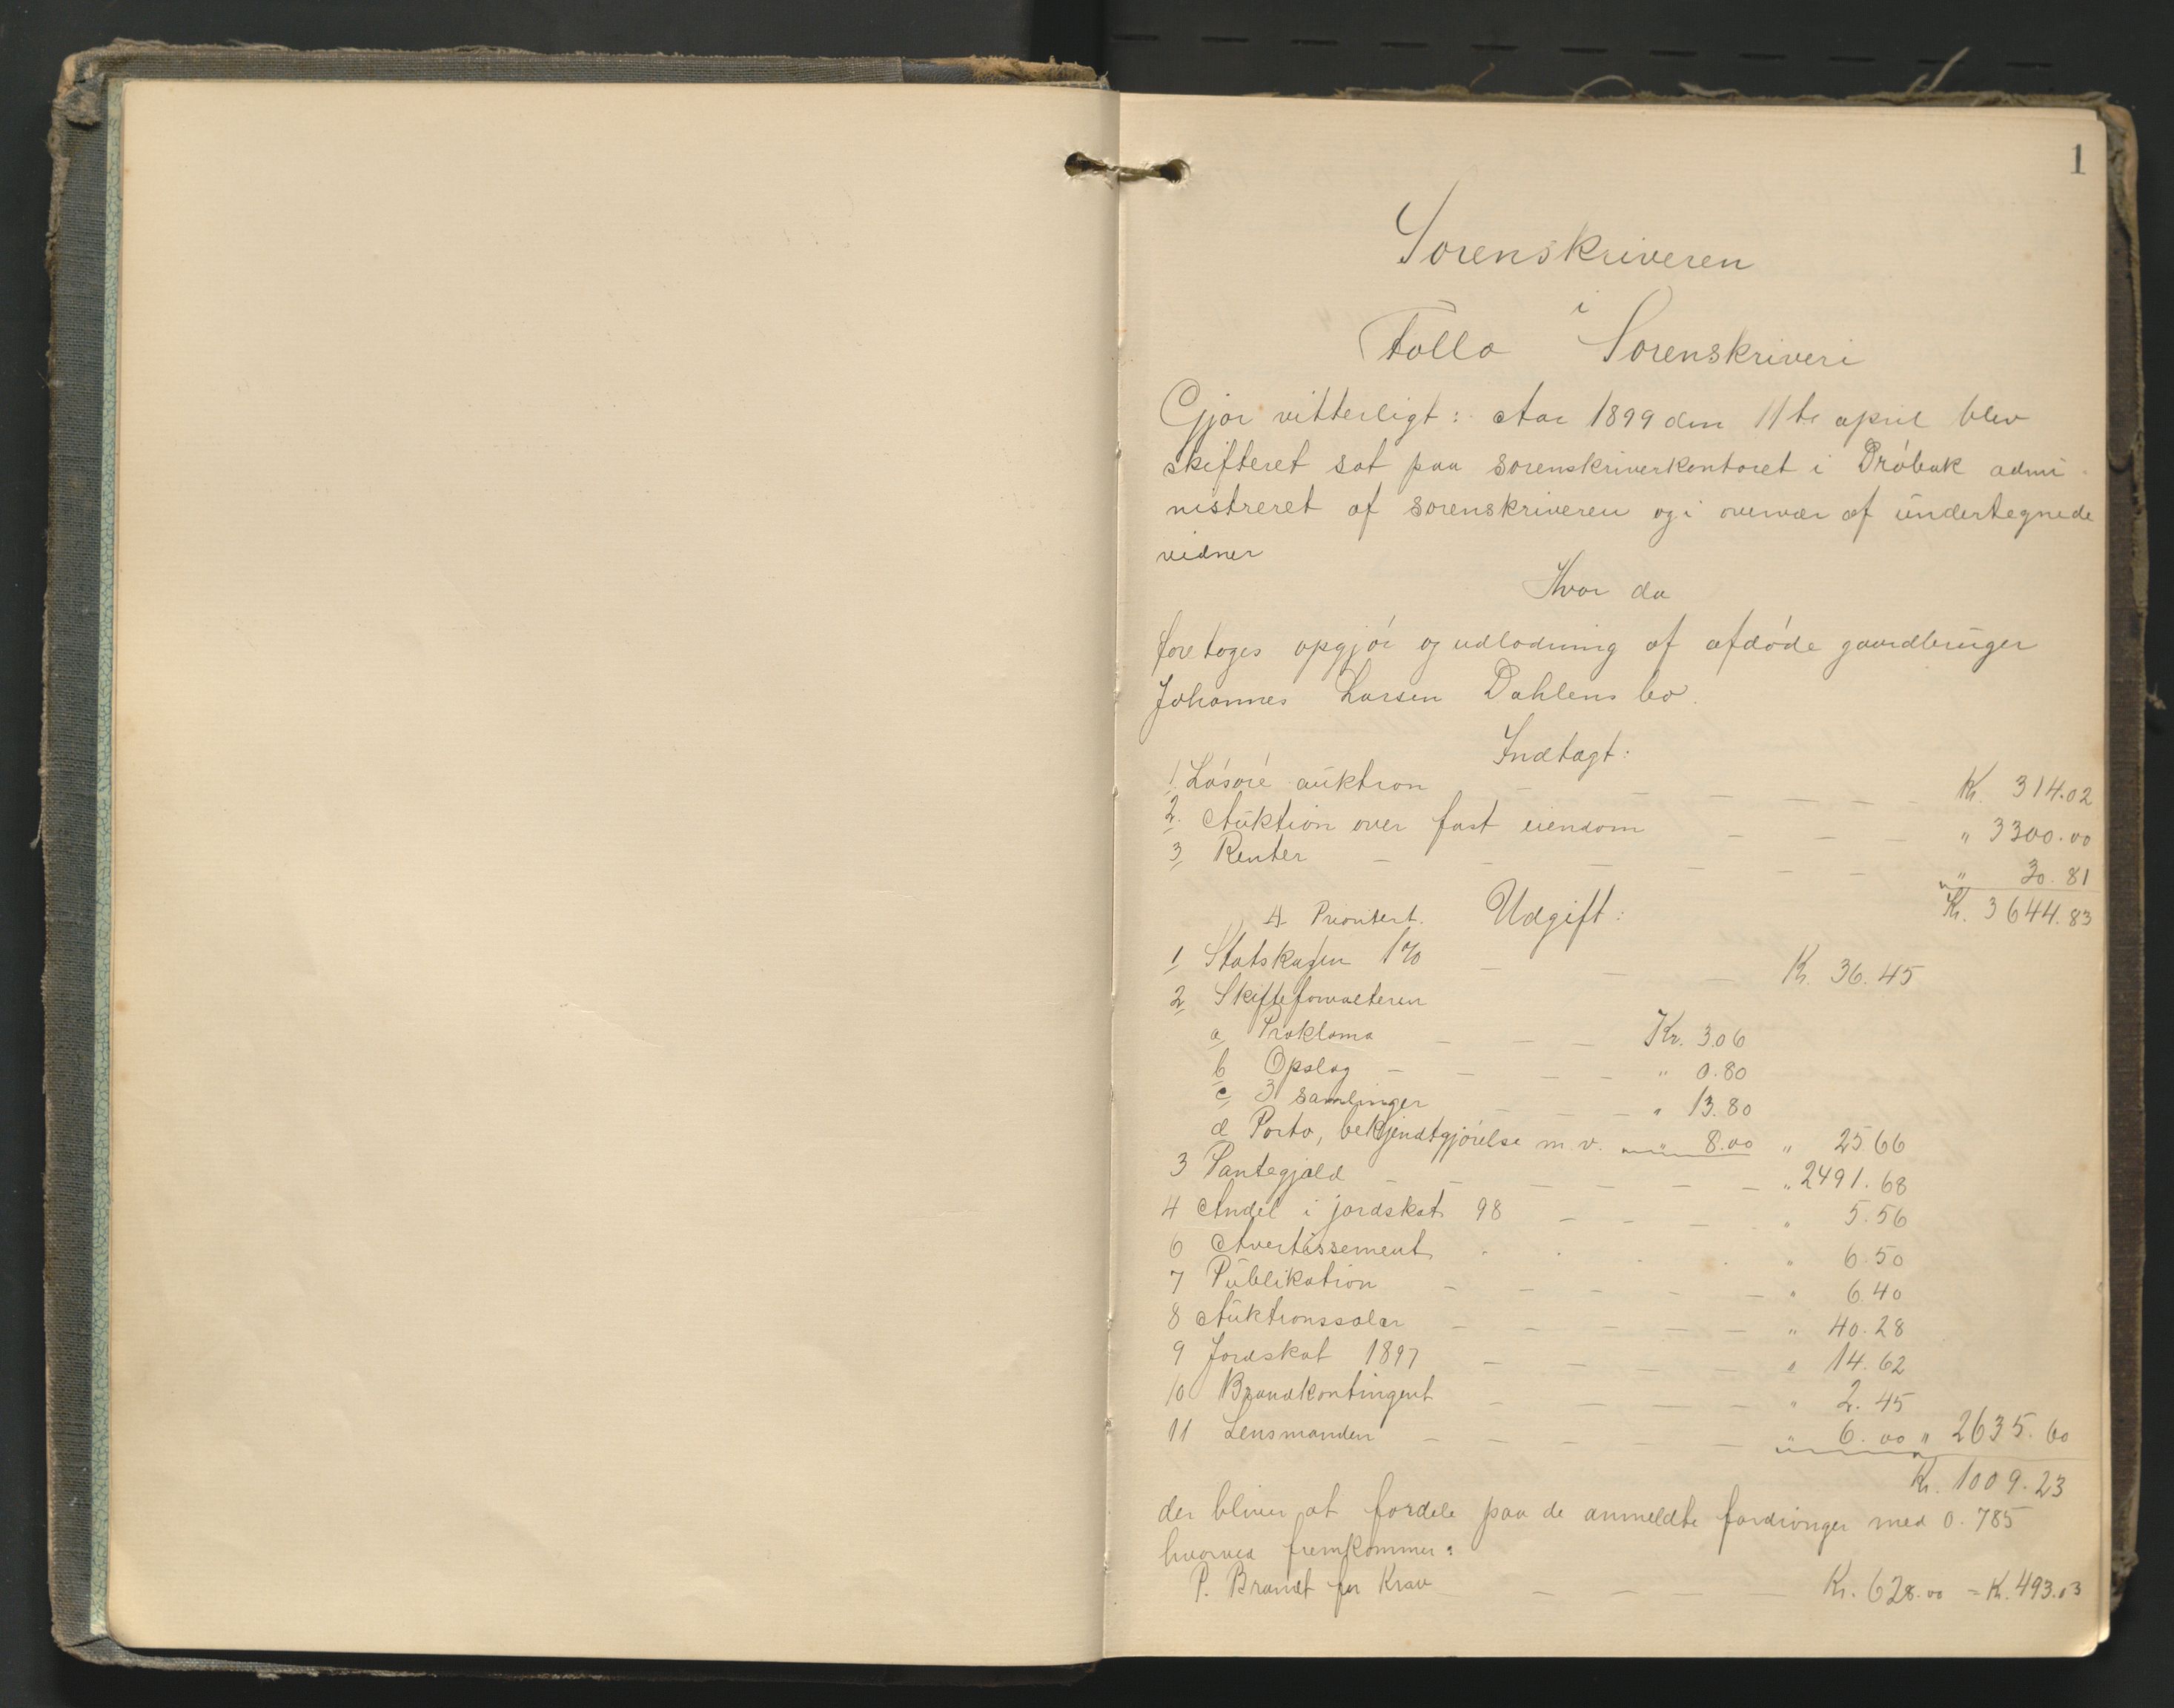 1
Sorenskriveren
i
Follo Sorenskriveri
Gjør vitterligt: Aar 1899 den 11te april blev
skifteret sat paa sorenskriverkontoret i Drøbak admi-
nistreret af sorenskriveren og i overvær af undertegnede
vidner
Hvor da
foretoges opgjør og udlodning af afdøde gaardbruger
Johannes Larsen Dahlens bo.
Indtægt:
1. Løsøre auktion — — — — — Kr. 314.02
2. Auktion over fast eiendom — — — " 3300.00
3. Renter — — — — — — " 30.81
Kr. 3644.83
A. Prioritert. Udgift:
1 Statskassen 1% — — — Kr. 36.45
2 Skifteforvalteren
a Proklama — — — Kr. 3.06
b Opslag — — — — " 0.80
c 3 samlinger — — — " 13.80
d Porto, bekjendtgjørelse m.v. " 8.00 " 25.66
3 Pantegjæld — — — — — — " 2491.68
4 Andel i jordskat 98 — — — — " 5.56
6 Avertissement . . . . " 6.50
7 Publikation — — — — — " 6.40
8 Auktionssalær — — — — — " 40.28
9 Jordskat 1897 — — — — " 14.62
10 Brandkontingent — — — — " 2.45
11 Lensmanden — — — — — " 6.00 " 2635.60
Kr. 1009.23
der bliver at fordele paa de anmeldte fordringer med 0.785
hvorved fremkommer:
P. Brandt for Krav — — — — Kr. 628.00 = Kr. 493.03